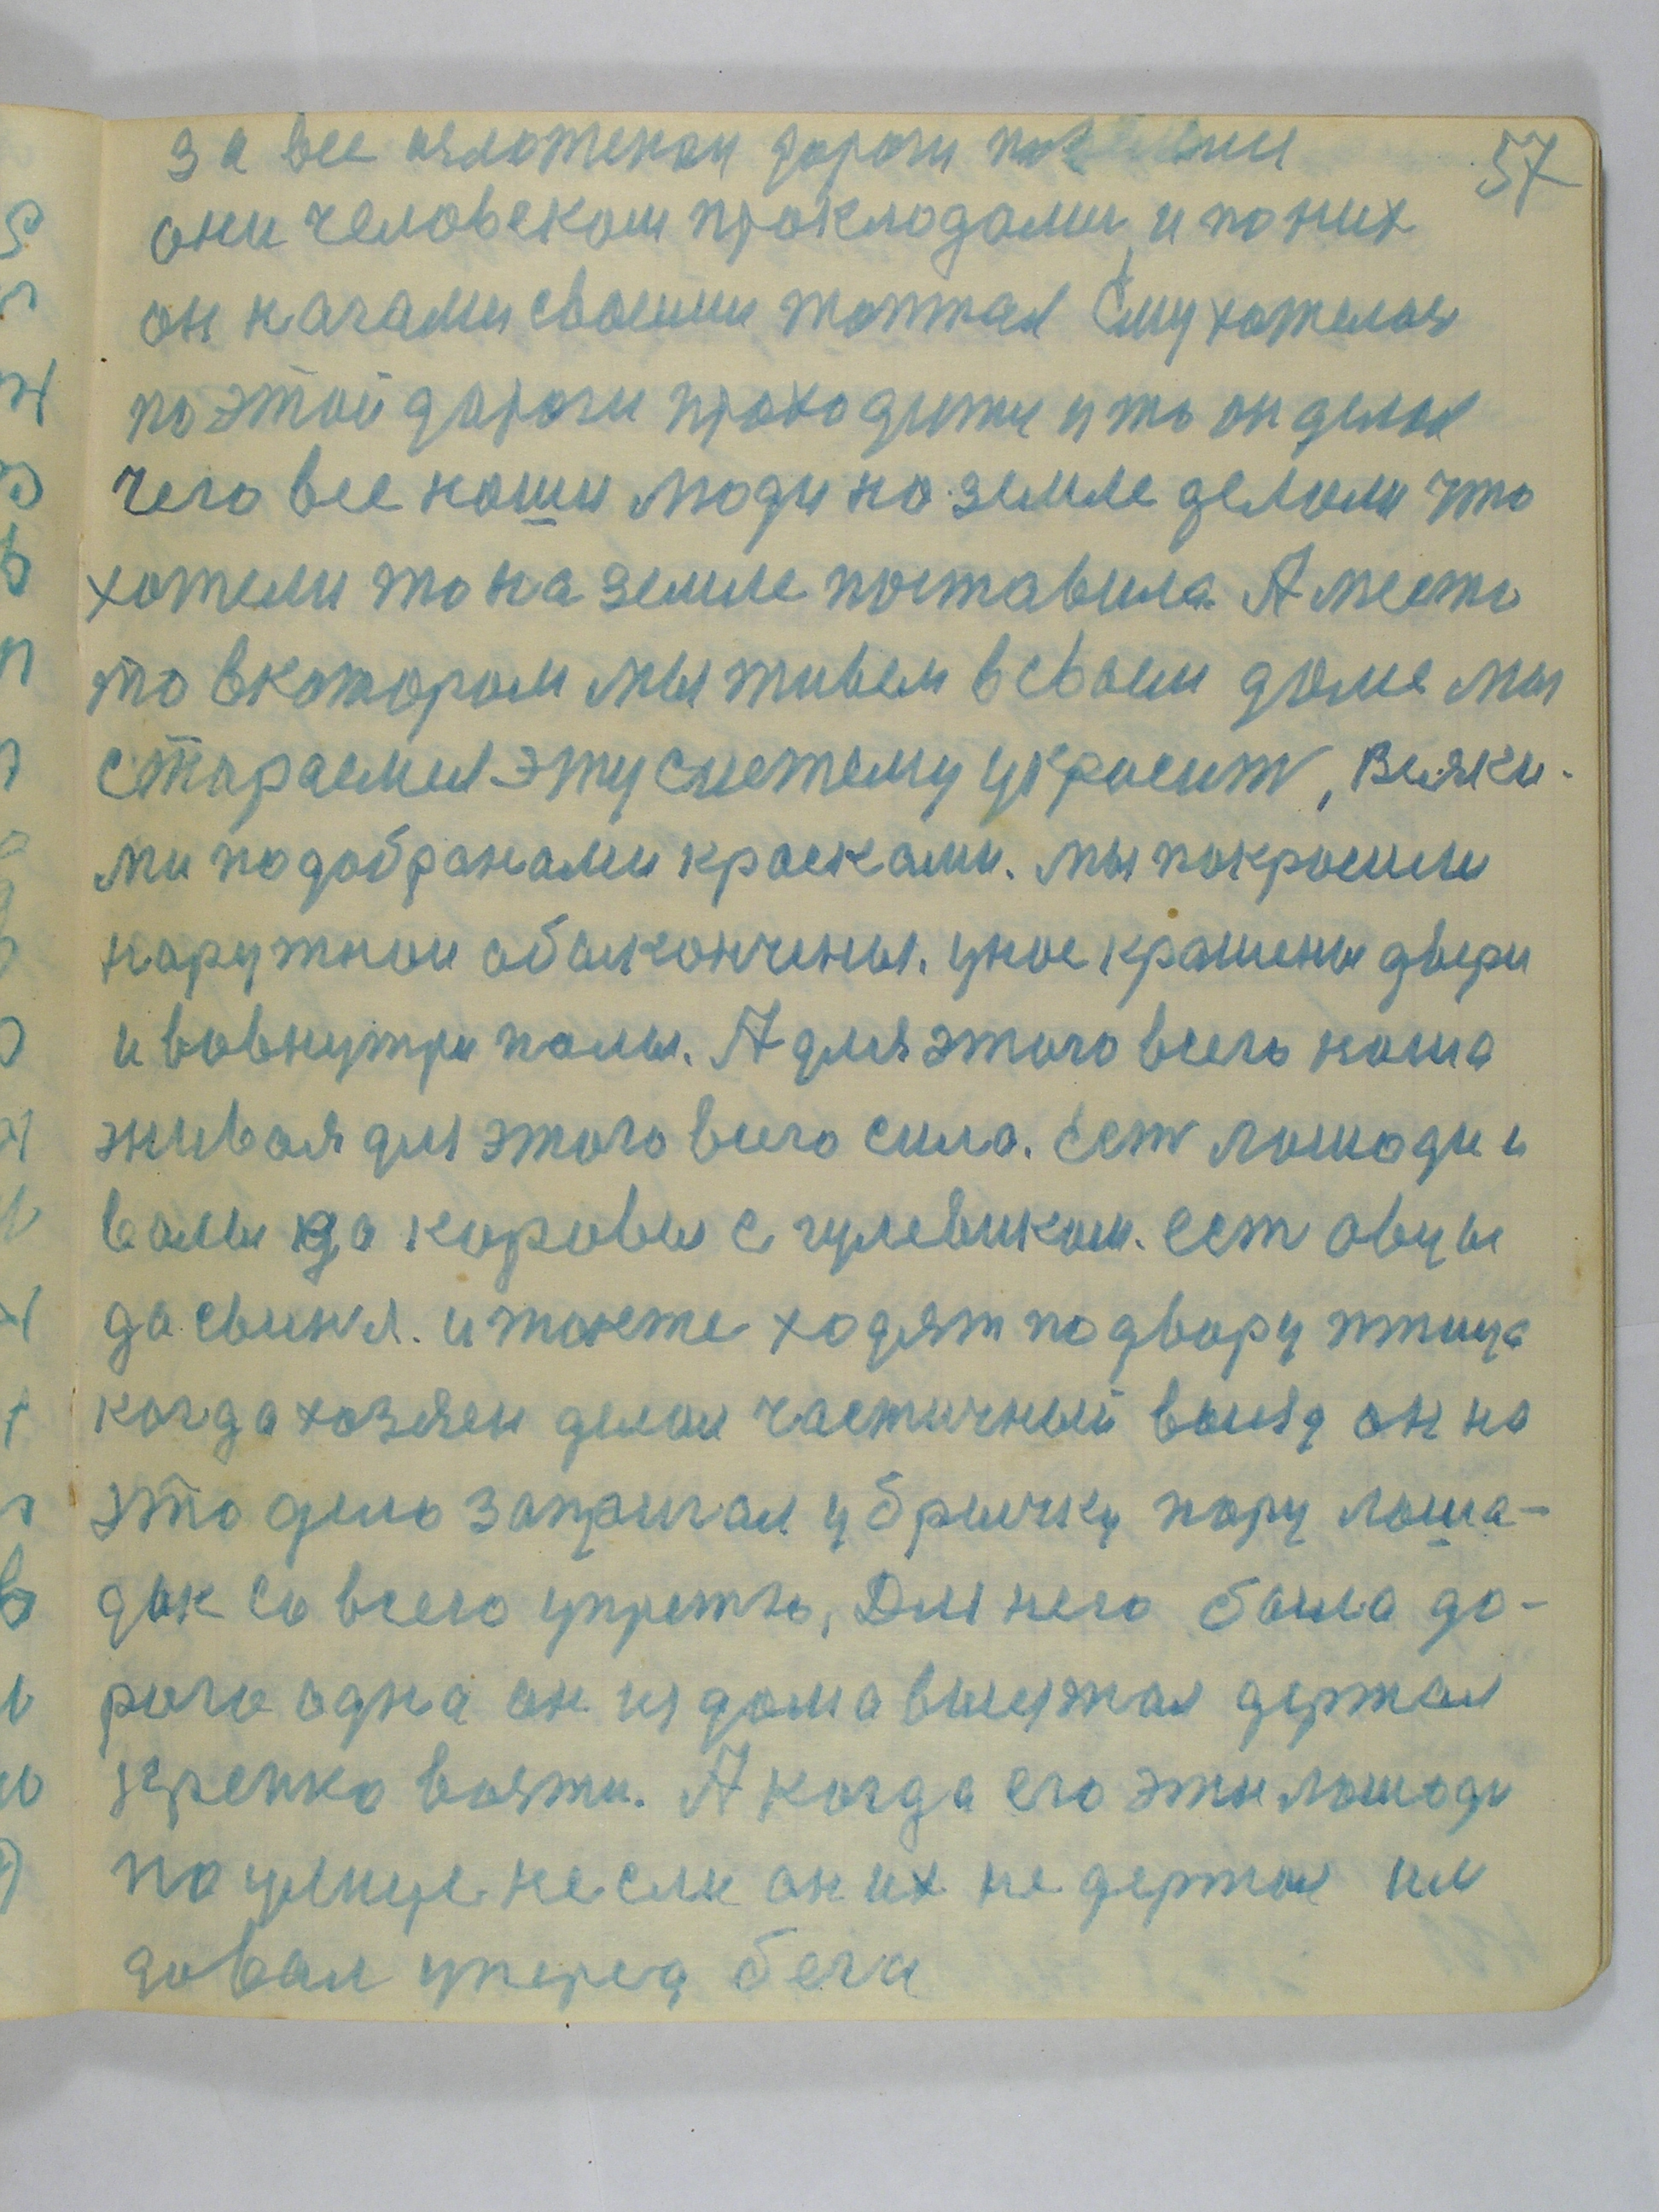 57
за все
они человеком прокладами и по них
он начами своими топтал Ему хотелося
по этой дороги проходити и то он делал
чего все наши люди на земле делали что
хотели то на земле поставила. А место
то в котором мы живем в своем доме мы
стараемся эту систему украсит, Всяки-
ми подобранами красками. мы покрасили
наружнои обалкончены. унас крашены двери
и вовнутри полы. А для этого всего наша
живоя для этого всего сила. Ест лошади и
волы да коровы с гулевиком. ест овцы
да свиня. и также ходят по двору птица
когда хозяен делал частичный выизд он на
это дело запригал у бричку пару лоша-
док со всего упрежъ, Для него была до-
рога одна он из дома выизжал держал
крепко вожжи. А когда его эти лошади
по улице несли он их не держал им
довал уперед бега